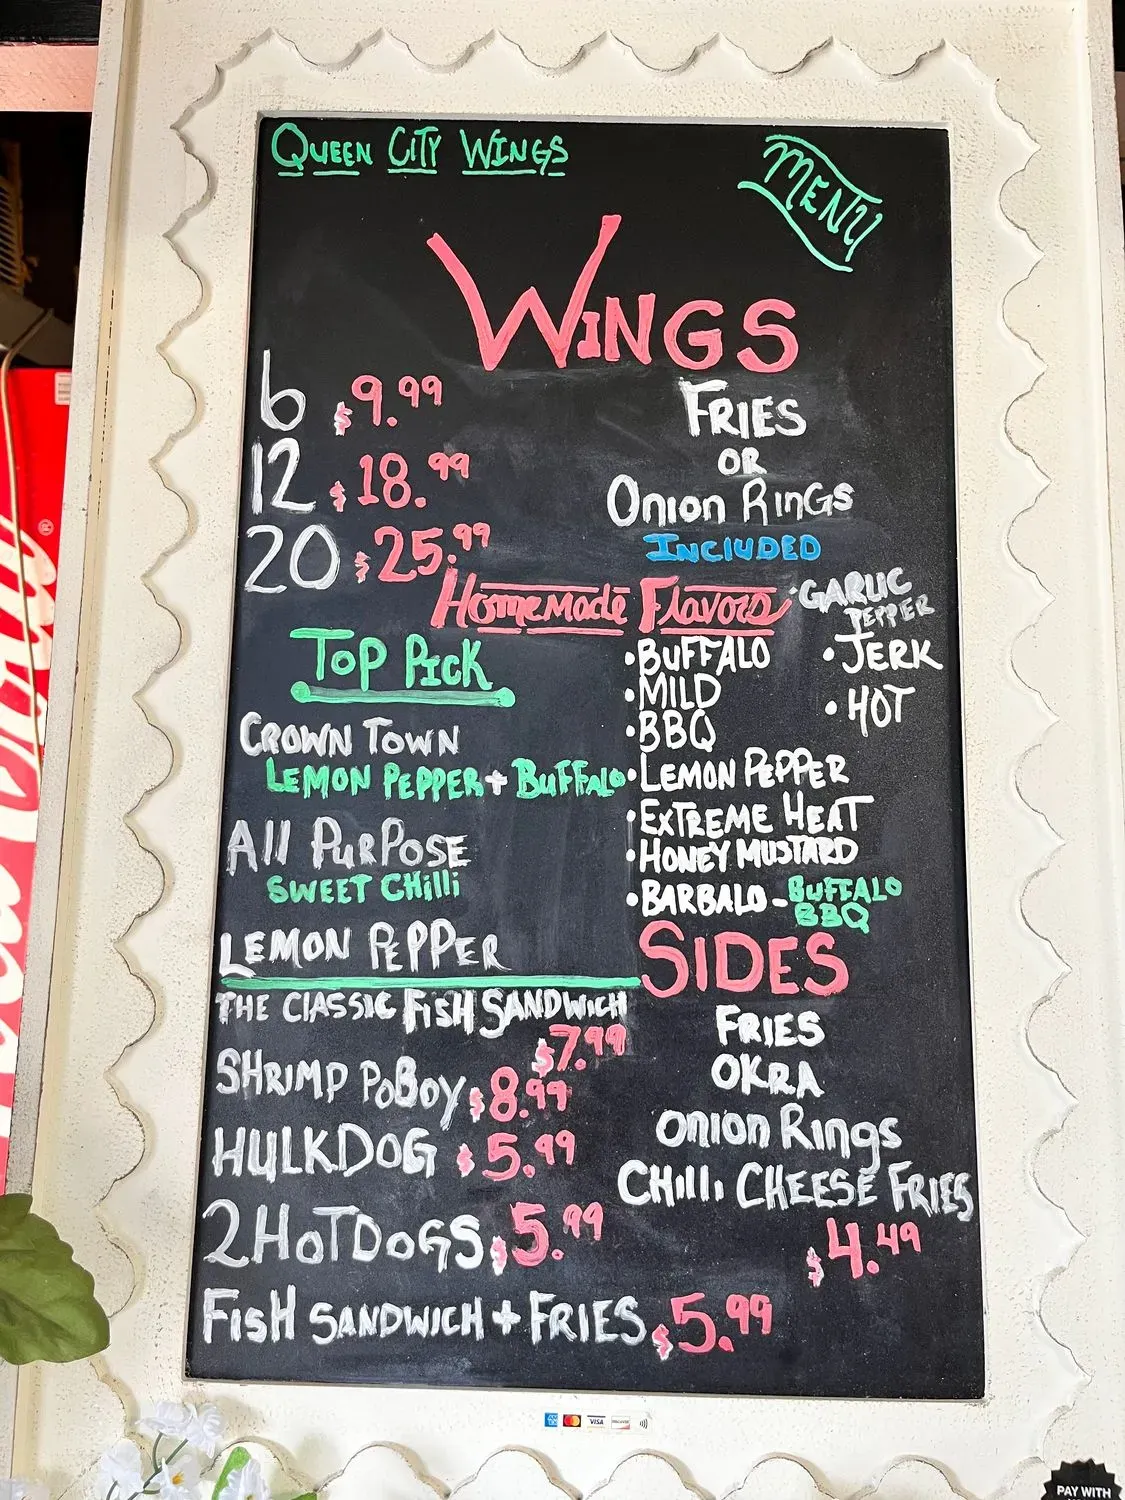 QUEEN CITY WINGS
MENU
WINGS
6 $9.99
12 $18.99
20 $25.99
FRIES
OR
Onion RinGS
INCLUDED
HomeMade Flavors
GARLIC
PEPPER
• JERK
• HOT
• BUFFALO
• MILD
• BBQ
• LEMON PEPPER
• EXTREME HEAT
• HONEY MUSTARD
• BARBALO - BUFFALO
BBQ
TOP PICK
CROWN TOWN
LEMON PEPPER + BUFFALO
All PURPOSE
SWEET CHilli
LEMON PEPPER
THE CLASSIC FISH SANDWICH
$7.99
SHRIMP POBOY $8.99
HULKDOG $5.99
2 HOTDOGS $5.99
FISH SANDWICH + FRIES $5.99
SIDES
FRIES
OKRA
Onion Rings
CHilli CHEESE FRIES
$4.49
VISA
DISCOVER
PAY WITH